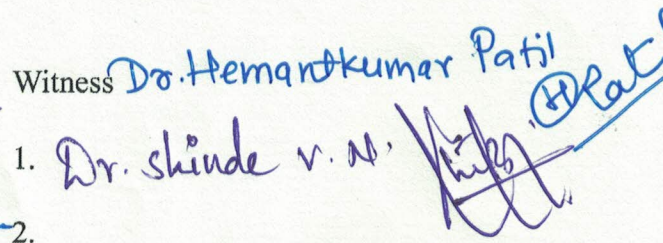 Witness Dr. Hemantkumar Patil
1. Dr. Shinde V. N.
2.